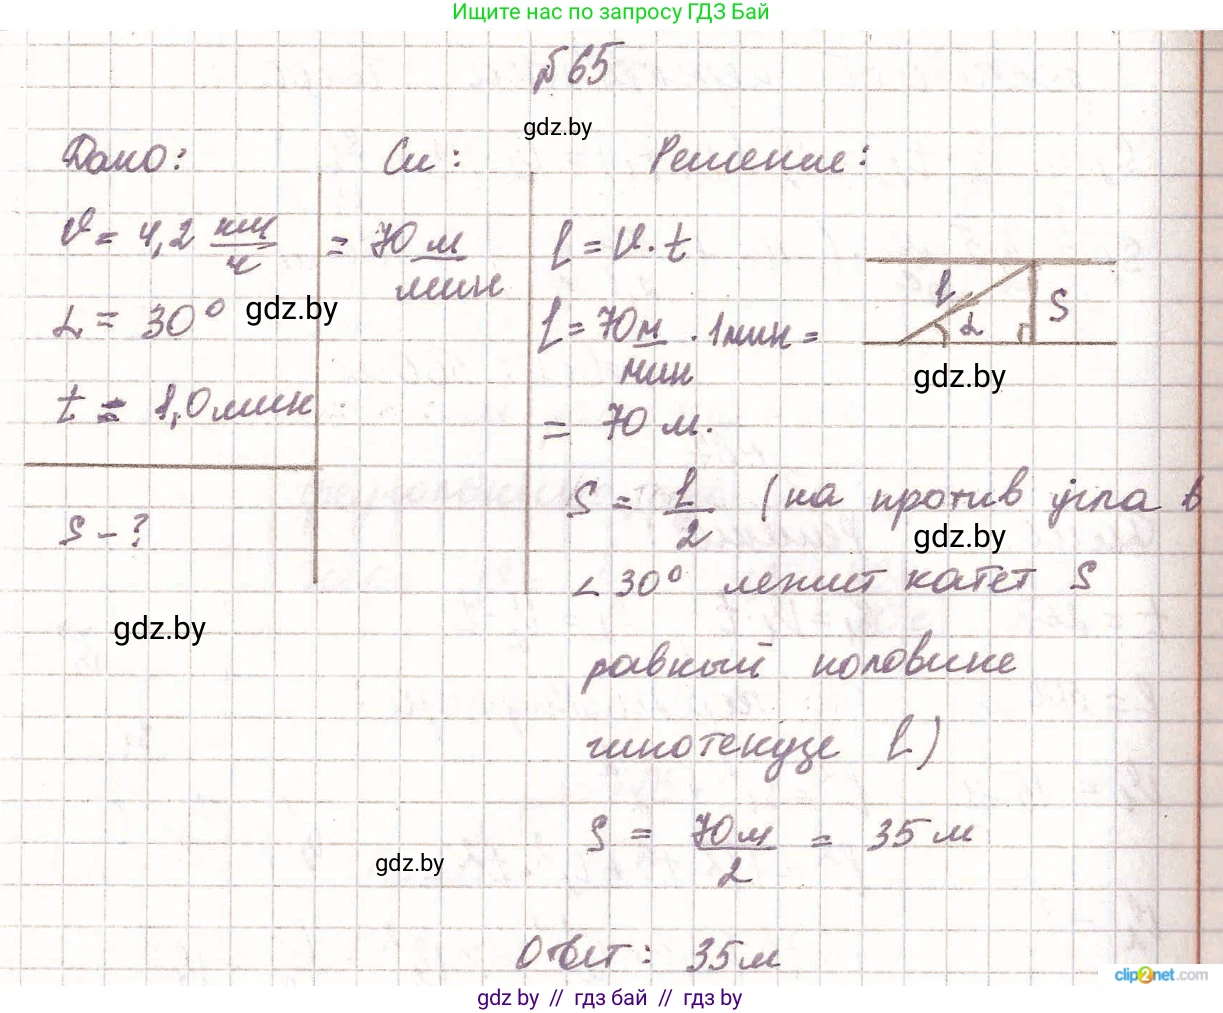 Ищите нас по запросу ГДЗ Бай
№65
gdz.by
Дано: Си: Решение:
υ = 4,2 км/ч = 70 м/мин
l = υ · t
α = 30°
gdz.by
l = 70 м/мин · 1мин =
= 70 м.
t = 1,0 мин
l
α
S
gdz.by
S - ?
S = l/2 (на против угла в
gdz.by
∠30° лежит катет S
gdz.by
равный половине
гипотенузе l)
S = 70м/2 = 35 м
gdz.by
Ответ: 35м
clip2net.com
gdz by // гдз бай // гдз by